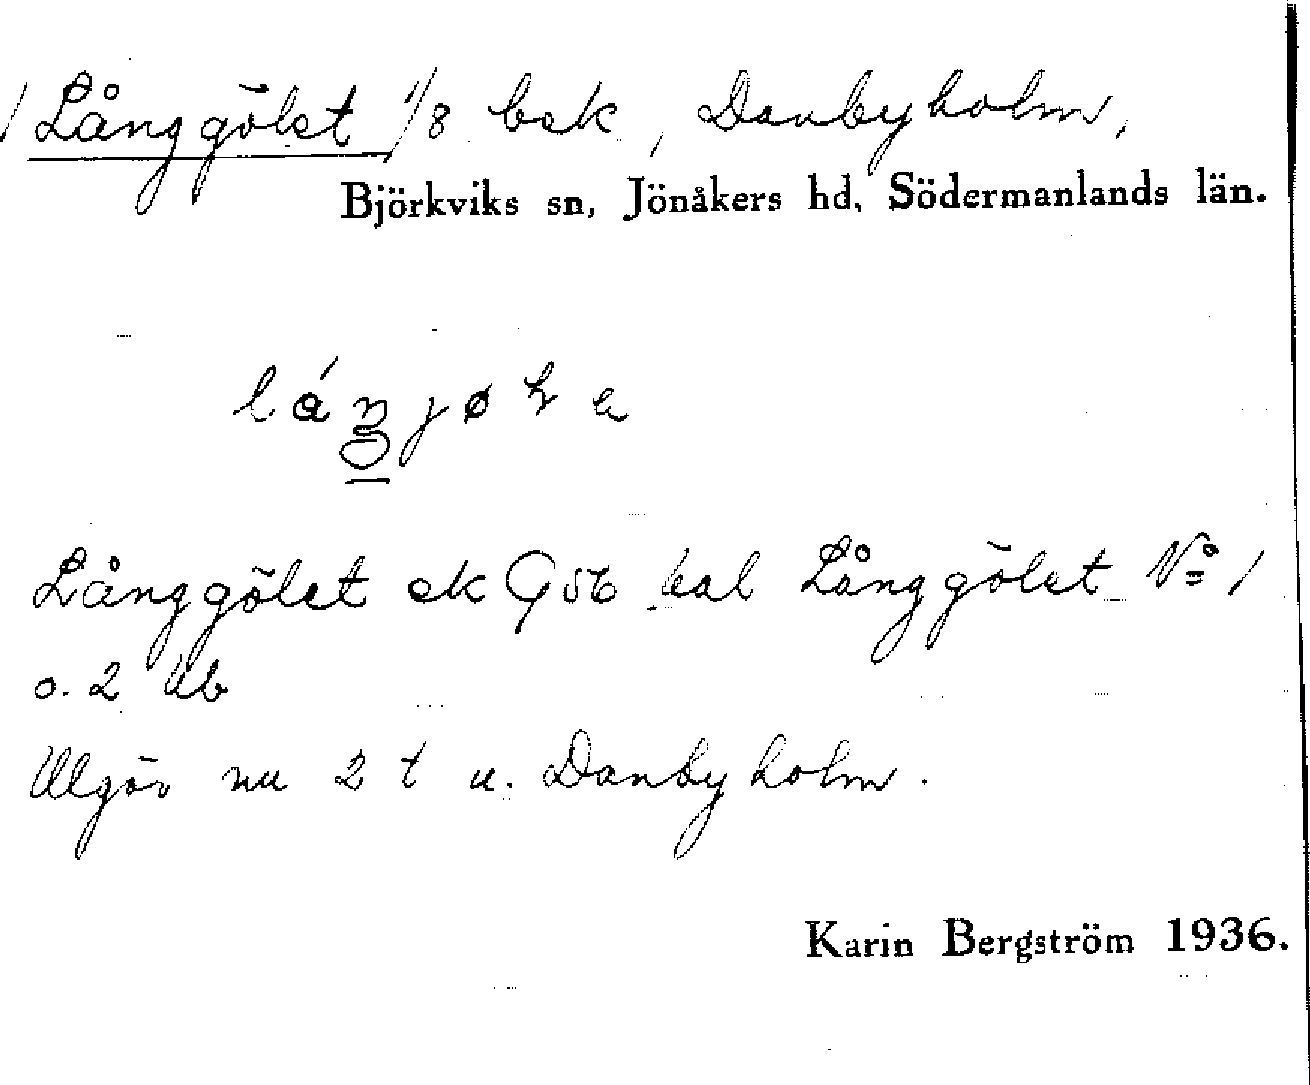 Långgölet 1/8 bsk, Danbyholm,
Björkviks sn, Jönåkers hd, Södermanlands län.
Långgölet ek G56 kal Långgölet No 1
o. 2 Ub
Utgör nu 2 t u. Danbyholm.
Karin Bergström 1936.